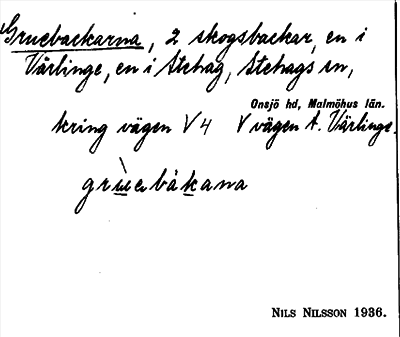 Gruebackarna, 2 skogsbackar, en i
Värlinge, en i Stehag, Stehags sn,
Onsjö hd, Malmöhus län.
kring vägen V 4 V vägen t. Värlinge.
grùe bákana
NILS NILSSON 1936.